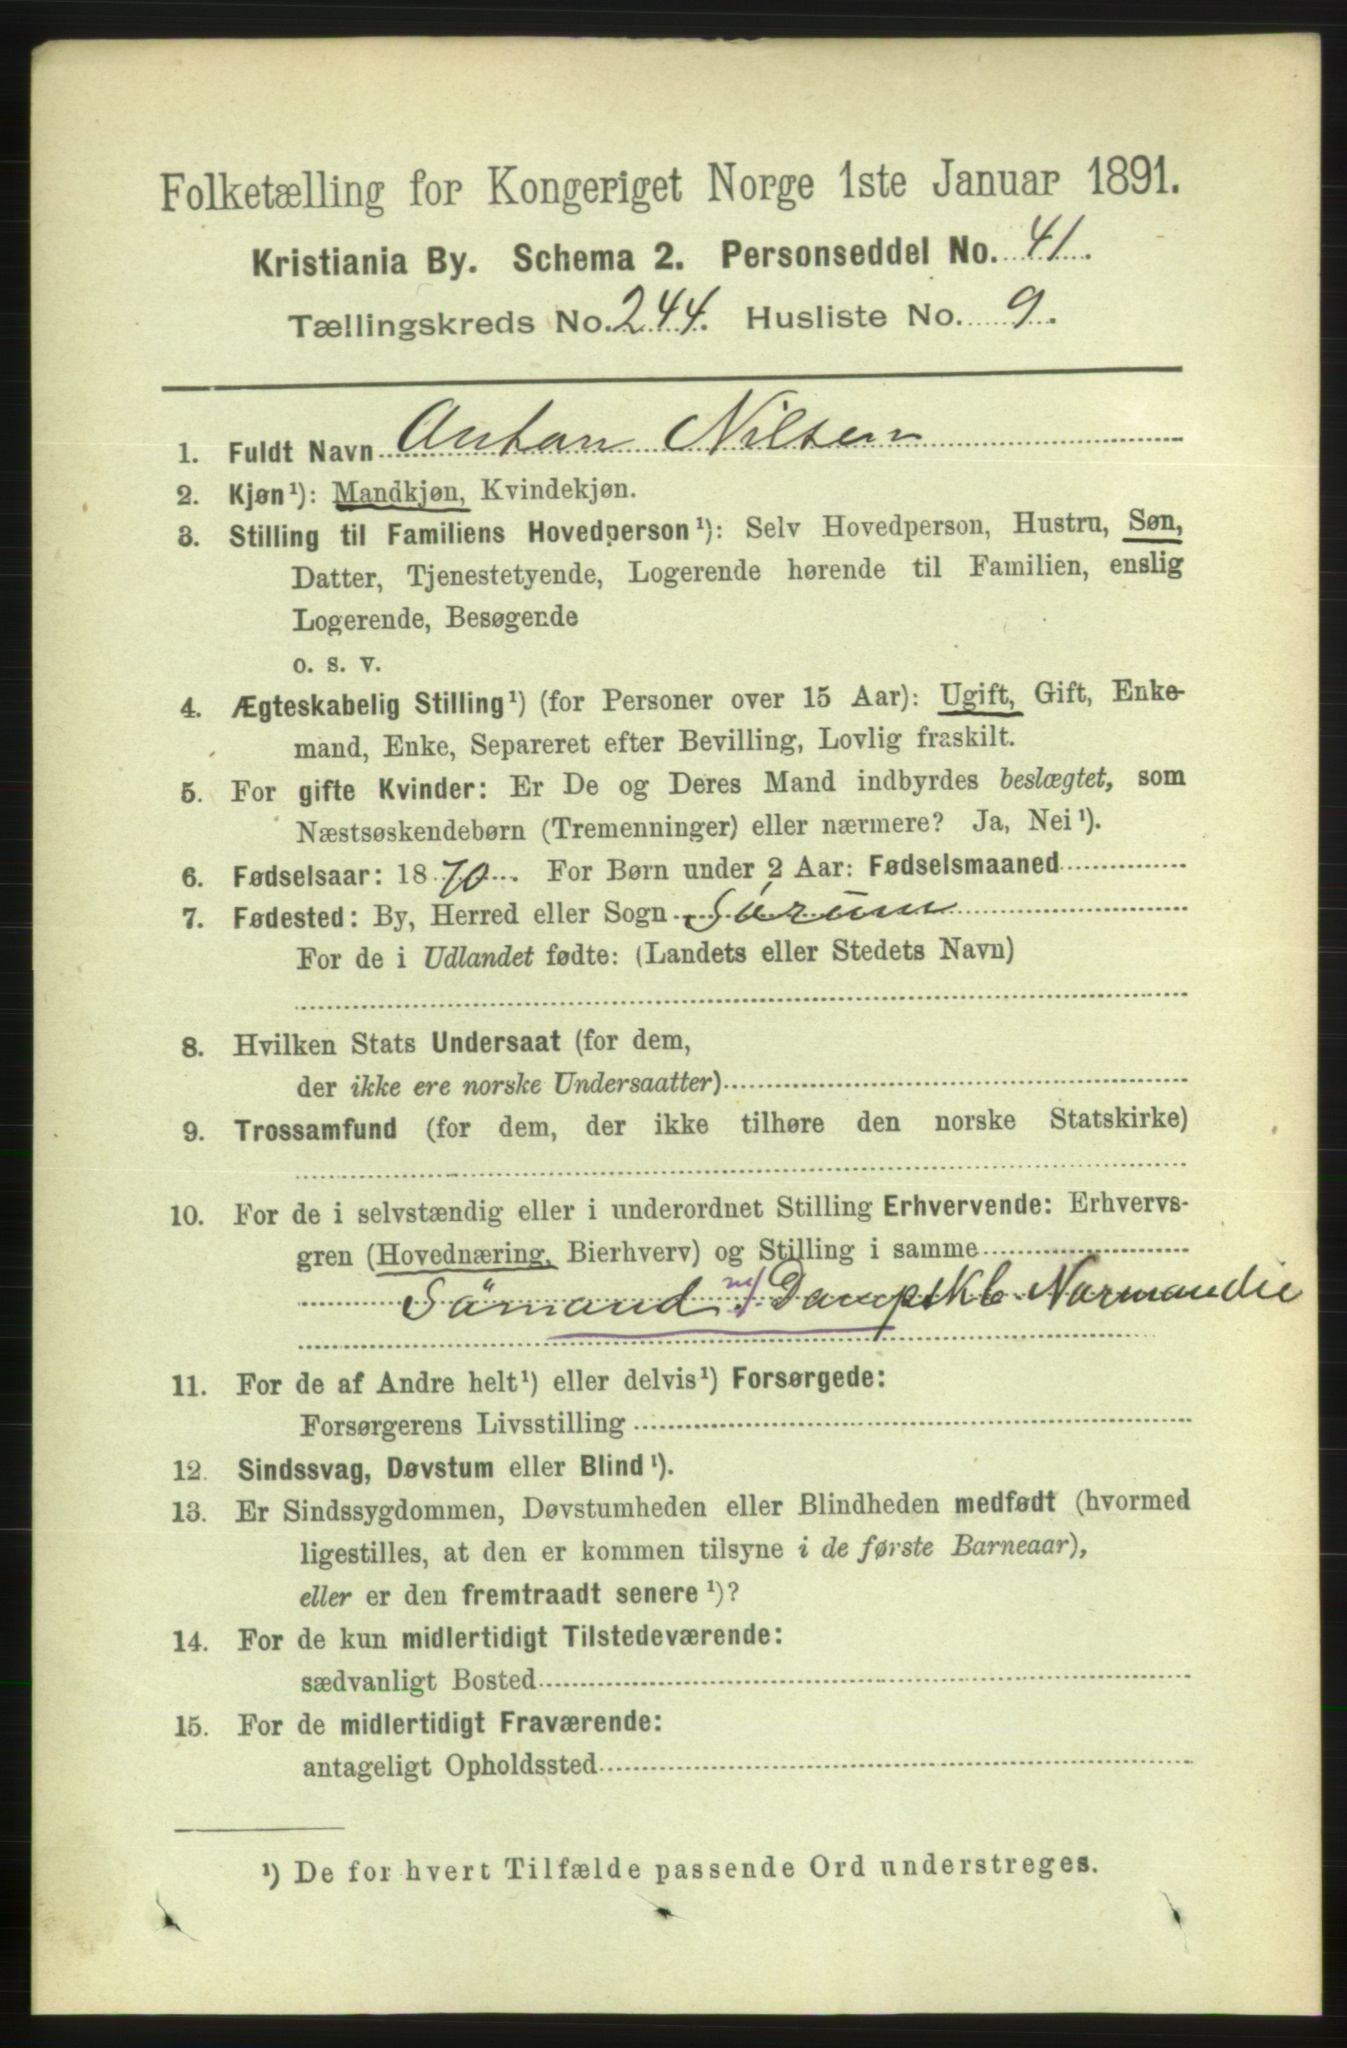 Folketælling for Kongeriget Norge 1ste Januar 1891.
Kristiania By. Schema 2. Personseddel No. 41.
Tællingskreds No. 244. Husliste No. 9.
1. Fuldt Navn Anton Nilsen
2. Kjøn¹): Mandkjøn, Kvindekjøn.
3. Stilling til Familiens Hovedperson¹): Selv Hovedperson, Hustru, Søn,
Datter, Tjenestetyende, Logerende hørende til Familien, enslig
Logerende, Besøgende
o. s. v.
4. Ægteskabelig Stilling¹) (for Personer over 15 Aar): Ugift, Gift, Enke-
mand, Enke, Separeret efter Bevilling, Lovlig fraskilt.
5. For gifte Kvinder: Er De og Deres Mand indbyrdes beslægtet, som
Næstsøskendebørn (Tremenninger) eller nærmere? Ja, Nei¹).
6. Fødselsaar: 1870. For Børn under 2 Aar: Fødselsmaaned
7. Fødested: By, Herred eller Sogn Sørum
For de i Udlandet fødte: (Landets eller Stedets Navn)
8. Hvilken Stats Undersaat (for dem,
der ikke ere norske Undersaatter)
9. Trossamfund (for dem, der ikke tilhøre den norske Statskirke)
10. For de i selvstændig eller i underordnet Stilling Erhvervende: Erhvervs-
gren (Hovednæring, Bierhverv) og Stilling i samme
Sömand m/ Dampskb Normandie
11. For de af Andre helt¹) eller delvis¹) Forsørgede:
Forsørgerens Livsstilling
12. Sindssvag, Døvstum eller Blind¹).
13. Er Sindssygdommen, Døvstumheden eller Blindheden medfødt (hvormed
ligestilles, at den er kommen tilsyne i de første Barneaar),
eller er den fremtraadt senere¹)?
14. For de kun midlertidigt Tilstedeværende:
sædvanligt Bosted
15. For de midlertidigt Fraværende:
antageligt Opholdssted
¹) De for hvert Tilfælde passende Ord understreges.